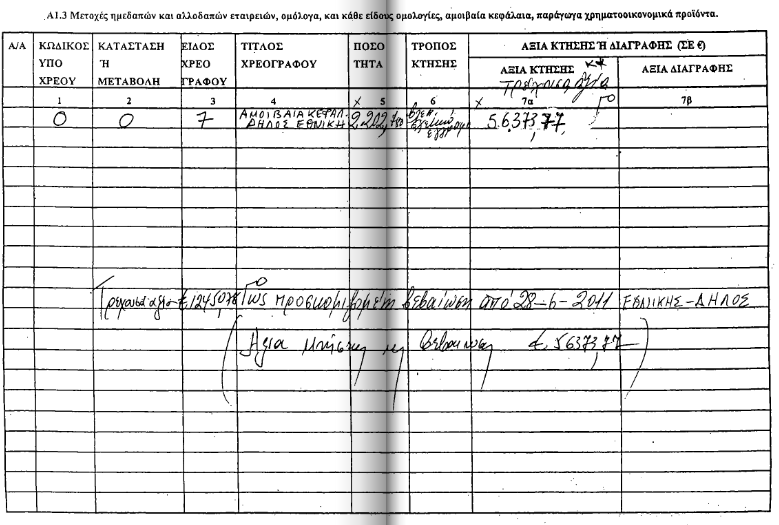 Α1.3 Μετοχές ημεδαπών και αλλοδαπών εταιρειών, ομόλογα, και κάθε είδους ομολογίες, αμοιβαία κεφάλαια, παράγωγα χρηματοοικονομικά προϊόντα.
Α/Α ΚΩΔΙΚΟΣ ΥΠΟ ΧΡΕΟΥ ΚΑΤΑΣΤΑΣΗ Ή ΜΕΤΑΒΟΛΗ ΕΙΔΟΣ ΧΡΕΟ ΓΡΑΦΟΥ ΤΙΤΛΟΣ ΧΡΕΟΓΡΑΦΟΥ ΠΟΣΟ ΤΗΤΑ ΤΡΟΠΟΣ ΚΤΗΣΗΣ ΑΞΙΑ ΚΤΗΣΗΣ Ή ΔΙΑΓΡΑΦΗΣ (ΣΕ €)
ΑΞΙΑ ΚΤΗΣΗΣ ΑΞΙΑ ΔΙΑΓΡΑΦΗΣ
Τρέχουσα αξία
1 2 3 4 x 5 6 x 7α 7β
0 0 7 ΑΜΟΙΒΑΙΑ ΚΕΦΑΛ. ΔΗΛΟΣ ΕΘΝΙΚΗ 5.637,77
Τρέχουσα αξία Πως προσκομιζομένη βεβαίωση από 28-6-2011 ΕΘΝΙΚΗΣ-ΔΗΛΟΣ
(Αξια κτήσης βεβαιωσης €. 5637,77)